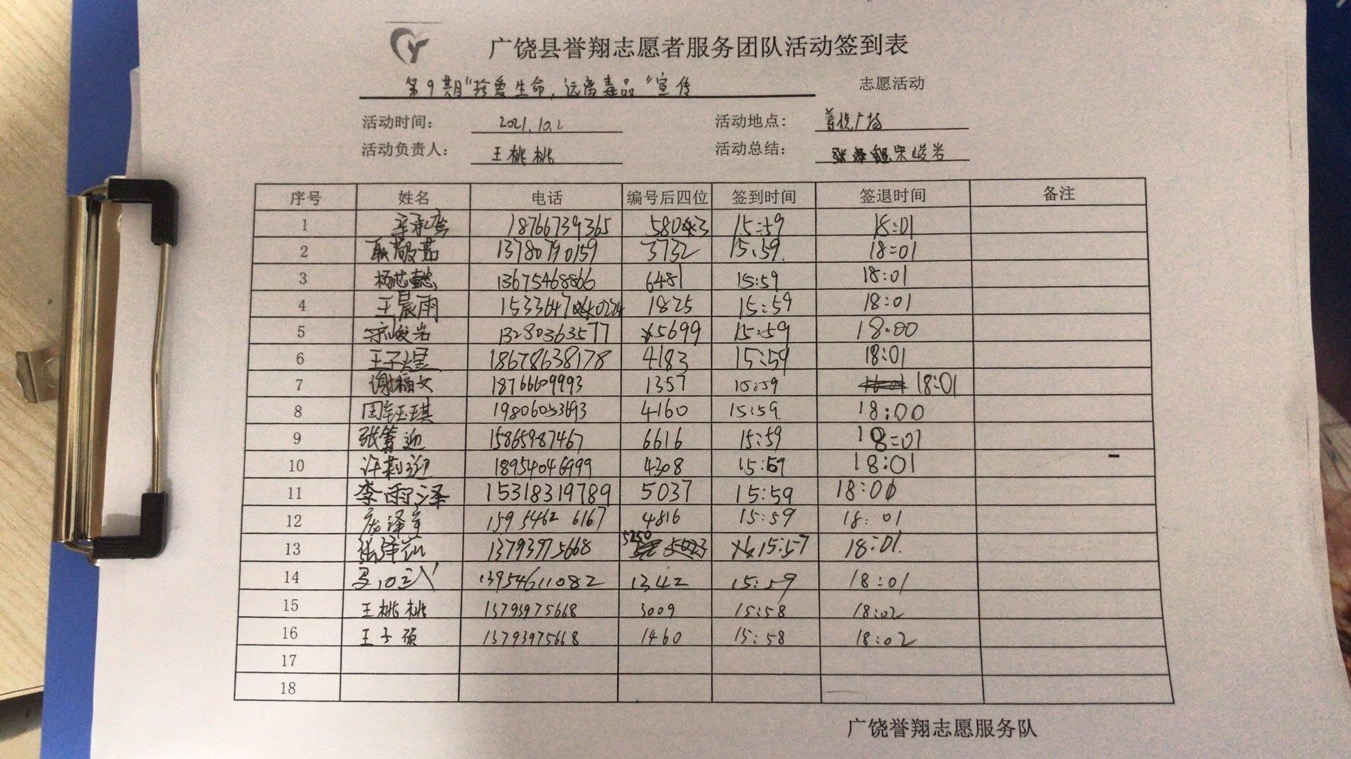 广饶县誉翔志愿者服务团队活动签到表
第9期"珍爱生命，远离毒品"宣传 志愿活动
活动时间： 2021.10.2 活动地点： 广场
活动负责人： 王桃桃 活动总结： 宋峻岩
序号 姓名 电话 编号后四位 签到时间 签退时间 备注
1 18766739365 15:59 18:01
2 耿敬茹 13780790159 3732 15:59. 18:01
3 杨芯懿 13675468866 6481 15:59 18:01
4 王晨雨 1825 15:59 18:01
5 宋峻岩 13280363577 5699 15:59 18:00
6 王子煜 18678638178 4183 15:59 18:01
7 谢福文 18766609993 1357 15:59 18:01
8 田钰琪 4160 15:59 18:00
9 张篝迎 15865987467 6616 15:59 18:01
10 许莉迎 18954046999 4308 15:59 18:01
11 李雨泽 15318319789 5037 15:59 18:00
12 15954626167 4816 15:59 18:01
13 13793975668 5250 15:57 18:01.
14 13954611082 1342 15:59 18:01
15 王桃桃 13793975668 3009 15:58 18:02
16 王子硕 13793975668 1460 15:58 18:02
17
18
广饶誉翔志愿服务队